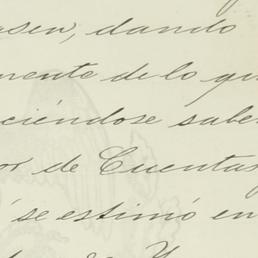 asen, dando
mente de lo qu
ciéndose sabe
or de Cuentas
se estimó en